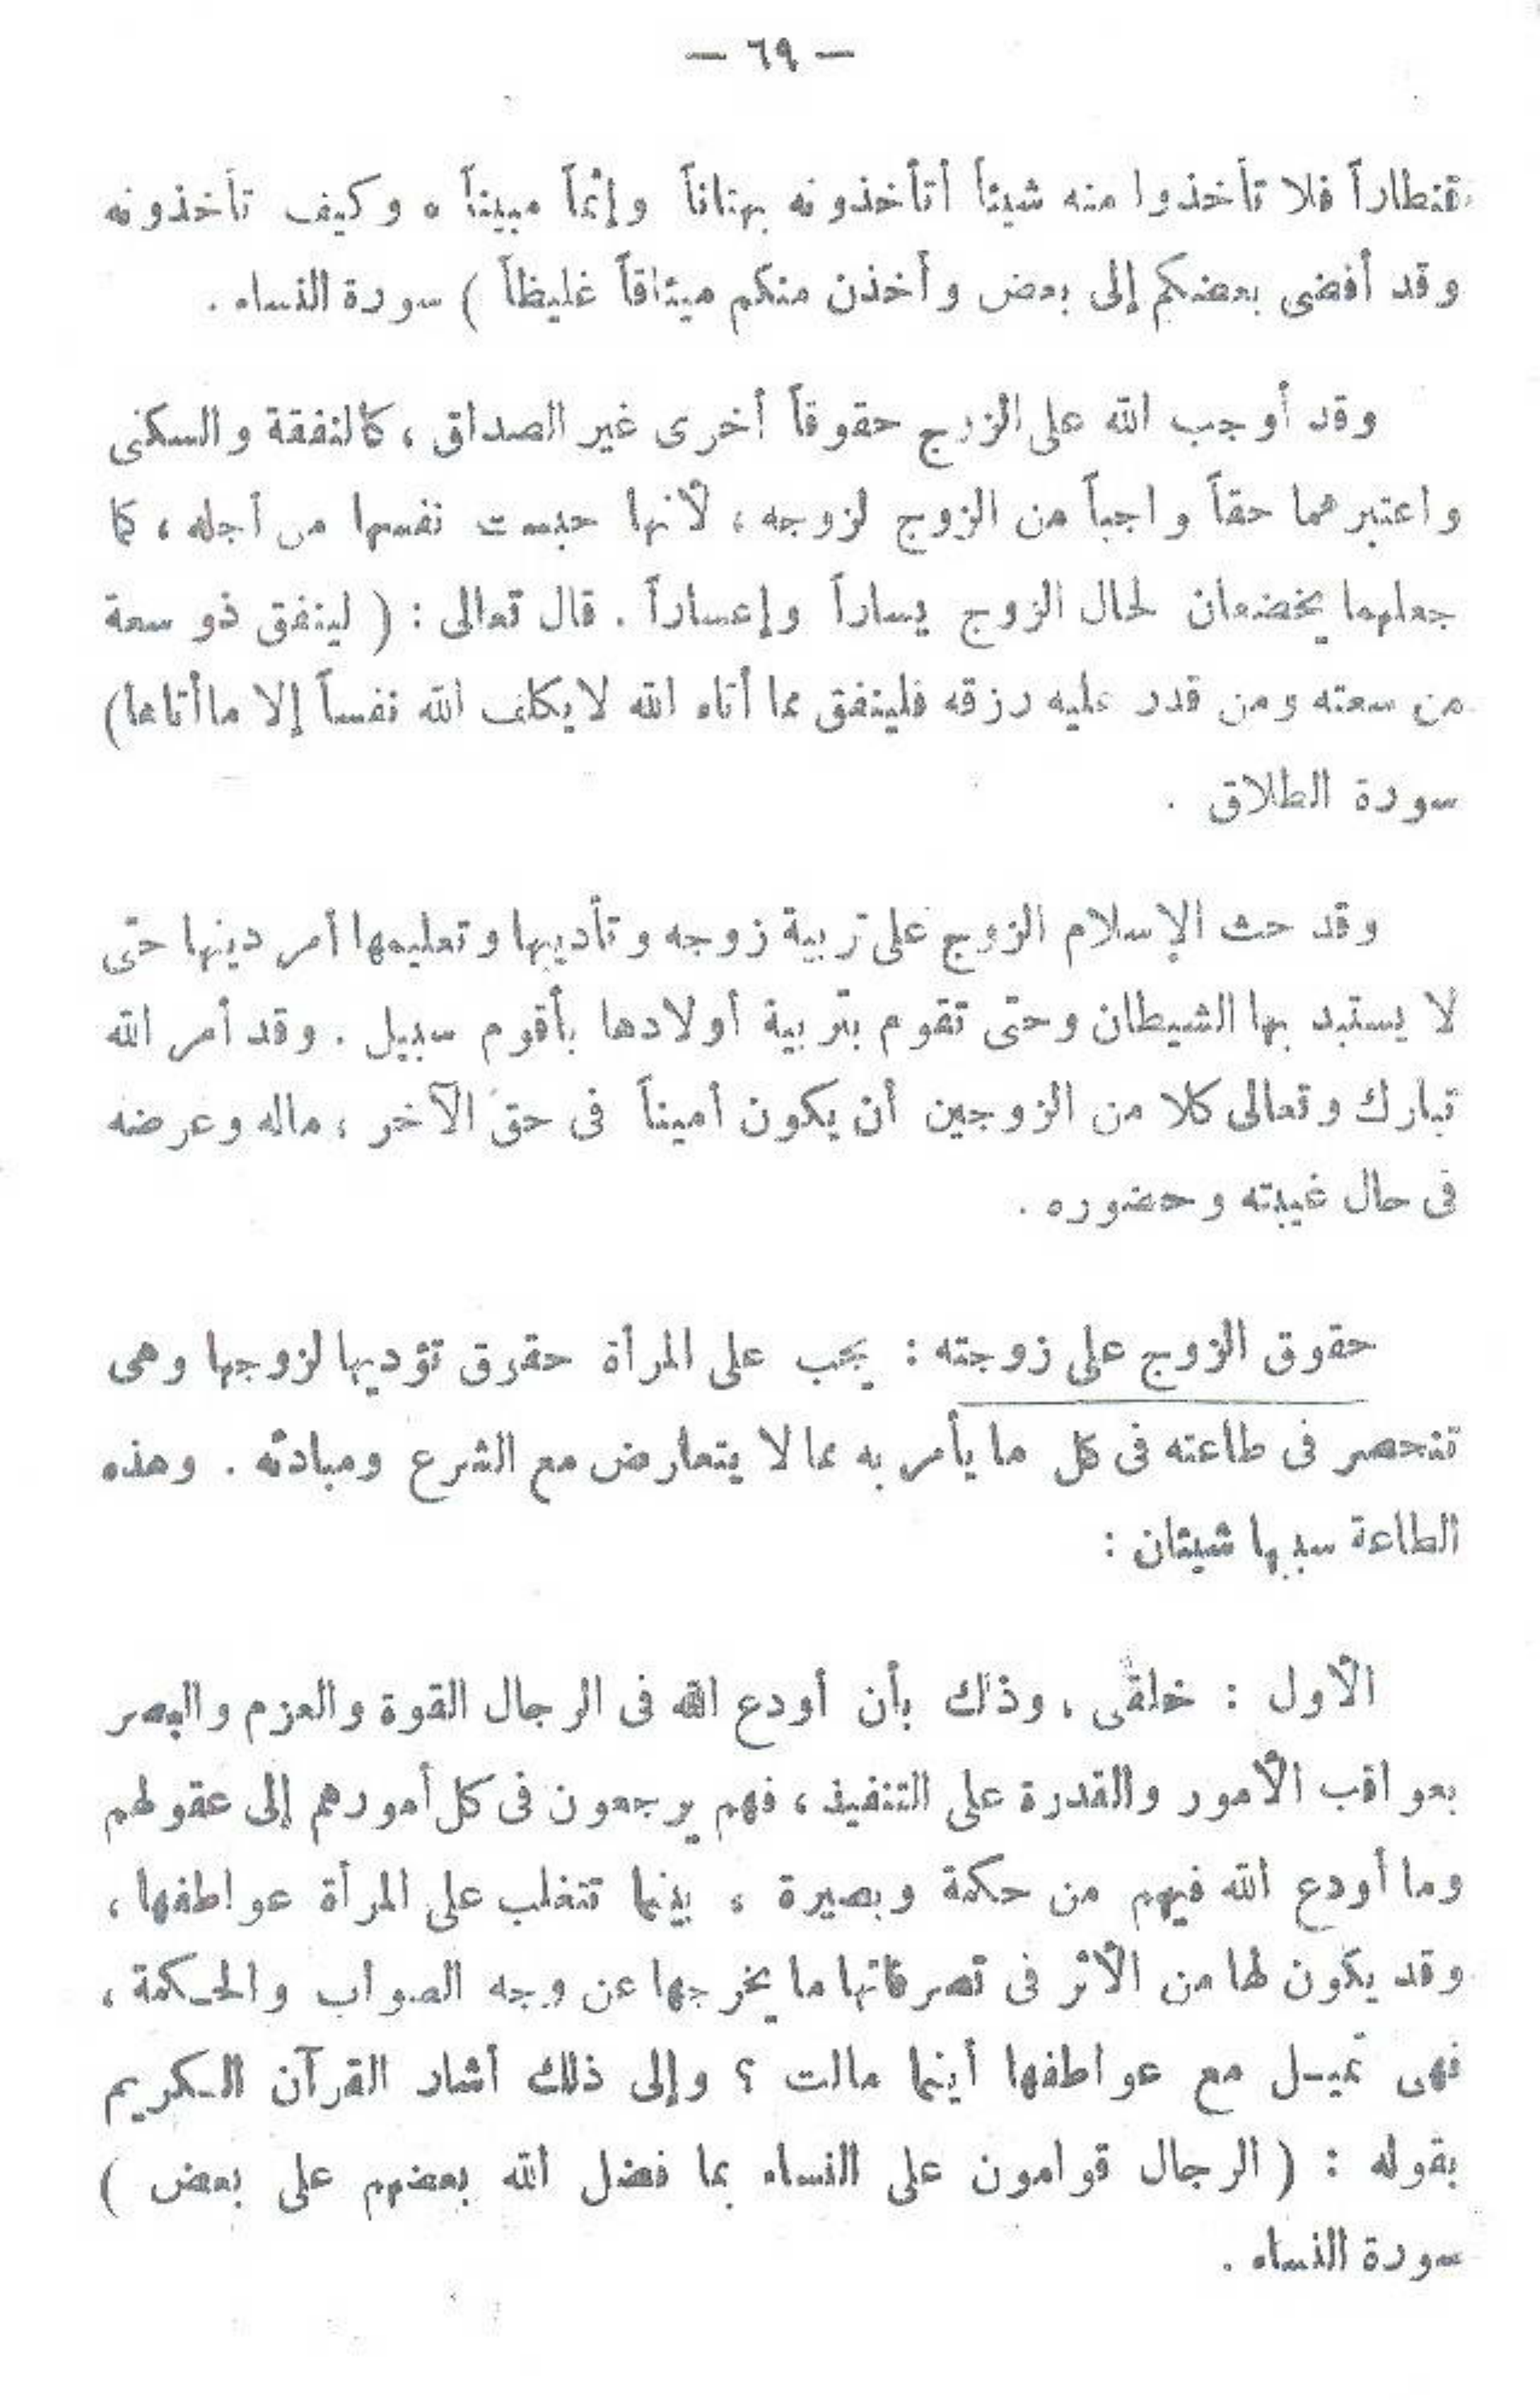 — ٦٩ —
قنطاراً فلا تأخذوا منه شيئاً أتأخذونه بهتاناً وإثماً مبيناً ه وكيف تأخذونه
وقد أفضى بعضكم إلى بعض وأخذن منكم ميثاقاً غليظاً ) سورة النساء .
وقد أوجب الله على الزوج حقوقاً أخرى غير الصداق ، كالنفقة والسكنى
واعتبرهما حقاً واجباً من الزوج لزوجه ، لأنها حبست نفسها من أجله ، كما
جعلهما يخضعان لحال الزوج يساراً وإعساراً . قال تعالى : ( لينفق ذو سعة
من سعته ومن قدر عليه رزقه فلينفق مما أتاه الله لا يكلف الله نفساً إلا ما أتاها)
سورة الطلاق .
وقد حث الإسلام الزوج على تربية زوجه وتأديبها وتعليمها أمر دينها حتى
لا يستبد بها الشيطان وحتى تقوم بتربية أولادها بأقوم سبيل . وقد أمر الله
تبارك وتعالى كلا من الزوجين أن يكون أميناً فى حق الآخر ، ماله وعرضه
فى حال غيبته وحضوره .
حقوق الزوج على زوجته : يجب على المرأة حقوق تؤديها لزوجها وهى
تنحصر فى طاعته فى كل ما يأمر به مما لا يتعارض مع الشرع ومبادئه . وهذه
الطاعة سببها شيئان :
الأول : خلقى ، وذلك بأن أودع الله فى الرجال القوة والعزم والبصر
بعواقب الأمور والقدرة على التنفيذ ، فهم يرجعون فى كل أمورهم إلى عقولهم
وما أودع الله فيهم من حكمة وبصيرة ، بينما تتغلب على المرأة عواطفها ،
وقد يكون لها من الأثر فى تصرفاتها ما يخرجها عن وجه الصواب والحكمة ،
فهى تميل مع عواطفها أينما مالت ؟ وإلى ذلك أشار القرآن الكريم
بقوله : ( الرجال قوامون على النساء بما فضل الله بعضهم على بعض )
سورة النساء .